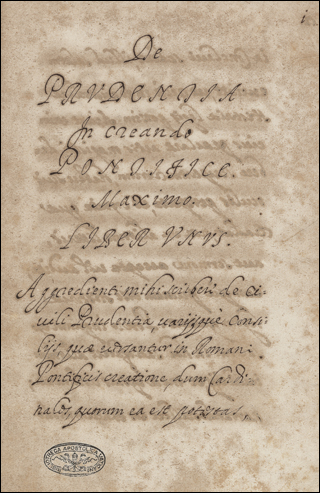 i
De
PRVDENTIA
In creando
PONTIFICE
Maximo.
LIBER VNVS.
Aggredienti mihi scribere de
Prudentia, varijsque Consi
lijs, quæ versantur in Roman:
Pontificis creatione dum Cardi=
nales, quorum ea est potestas,